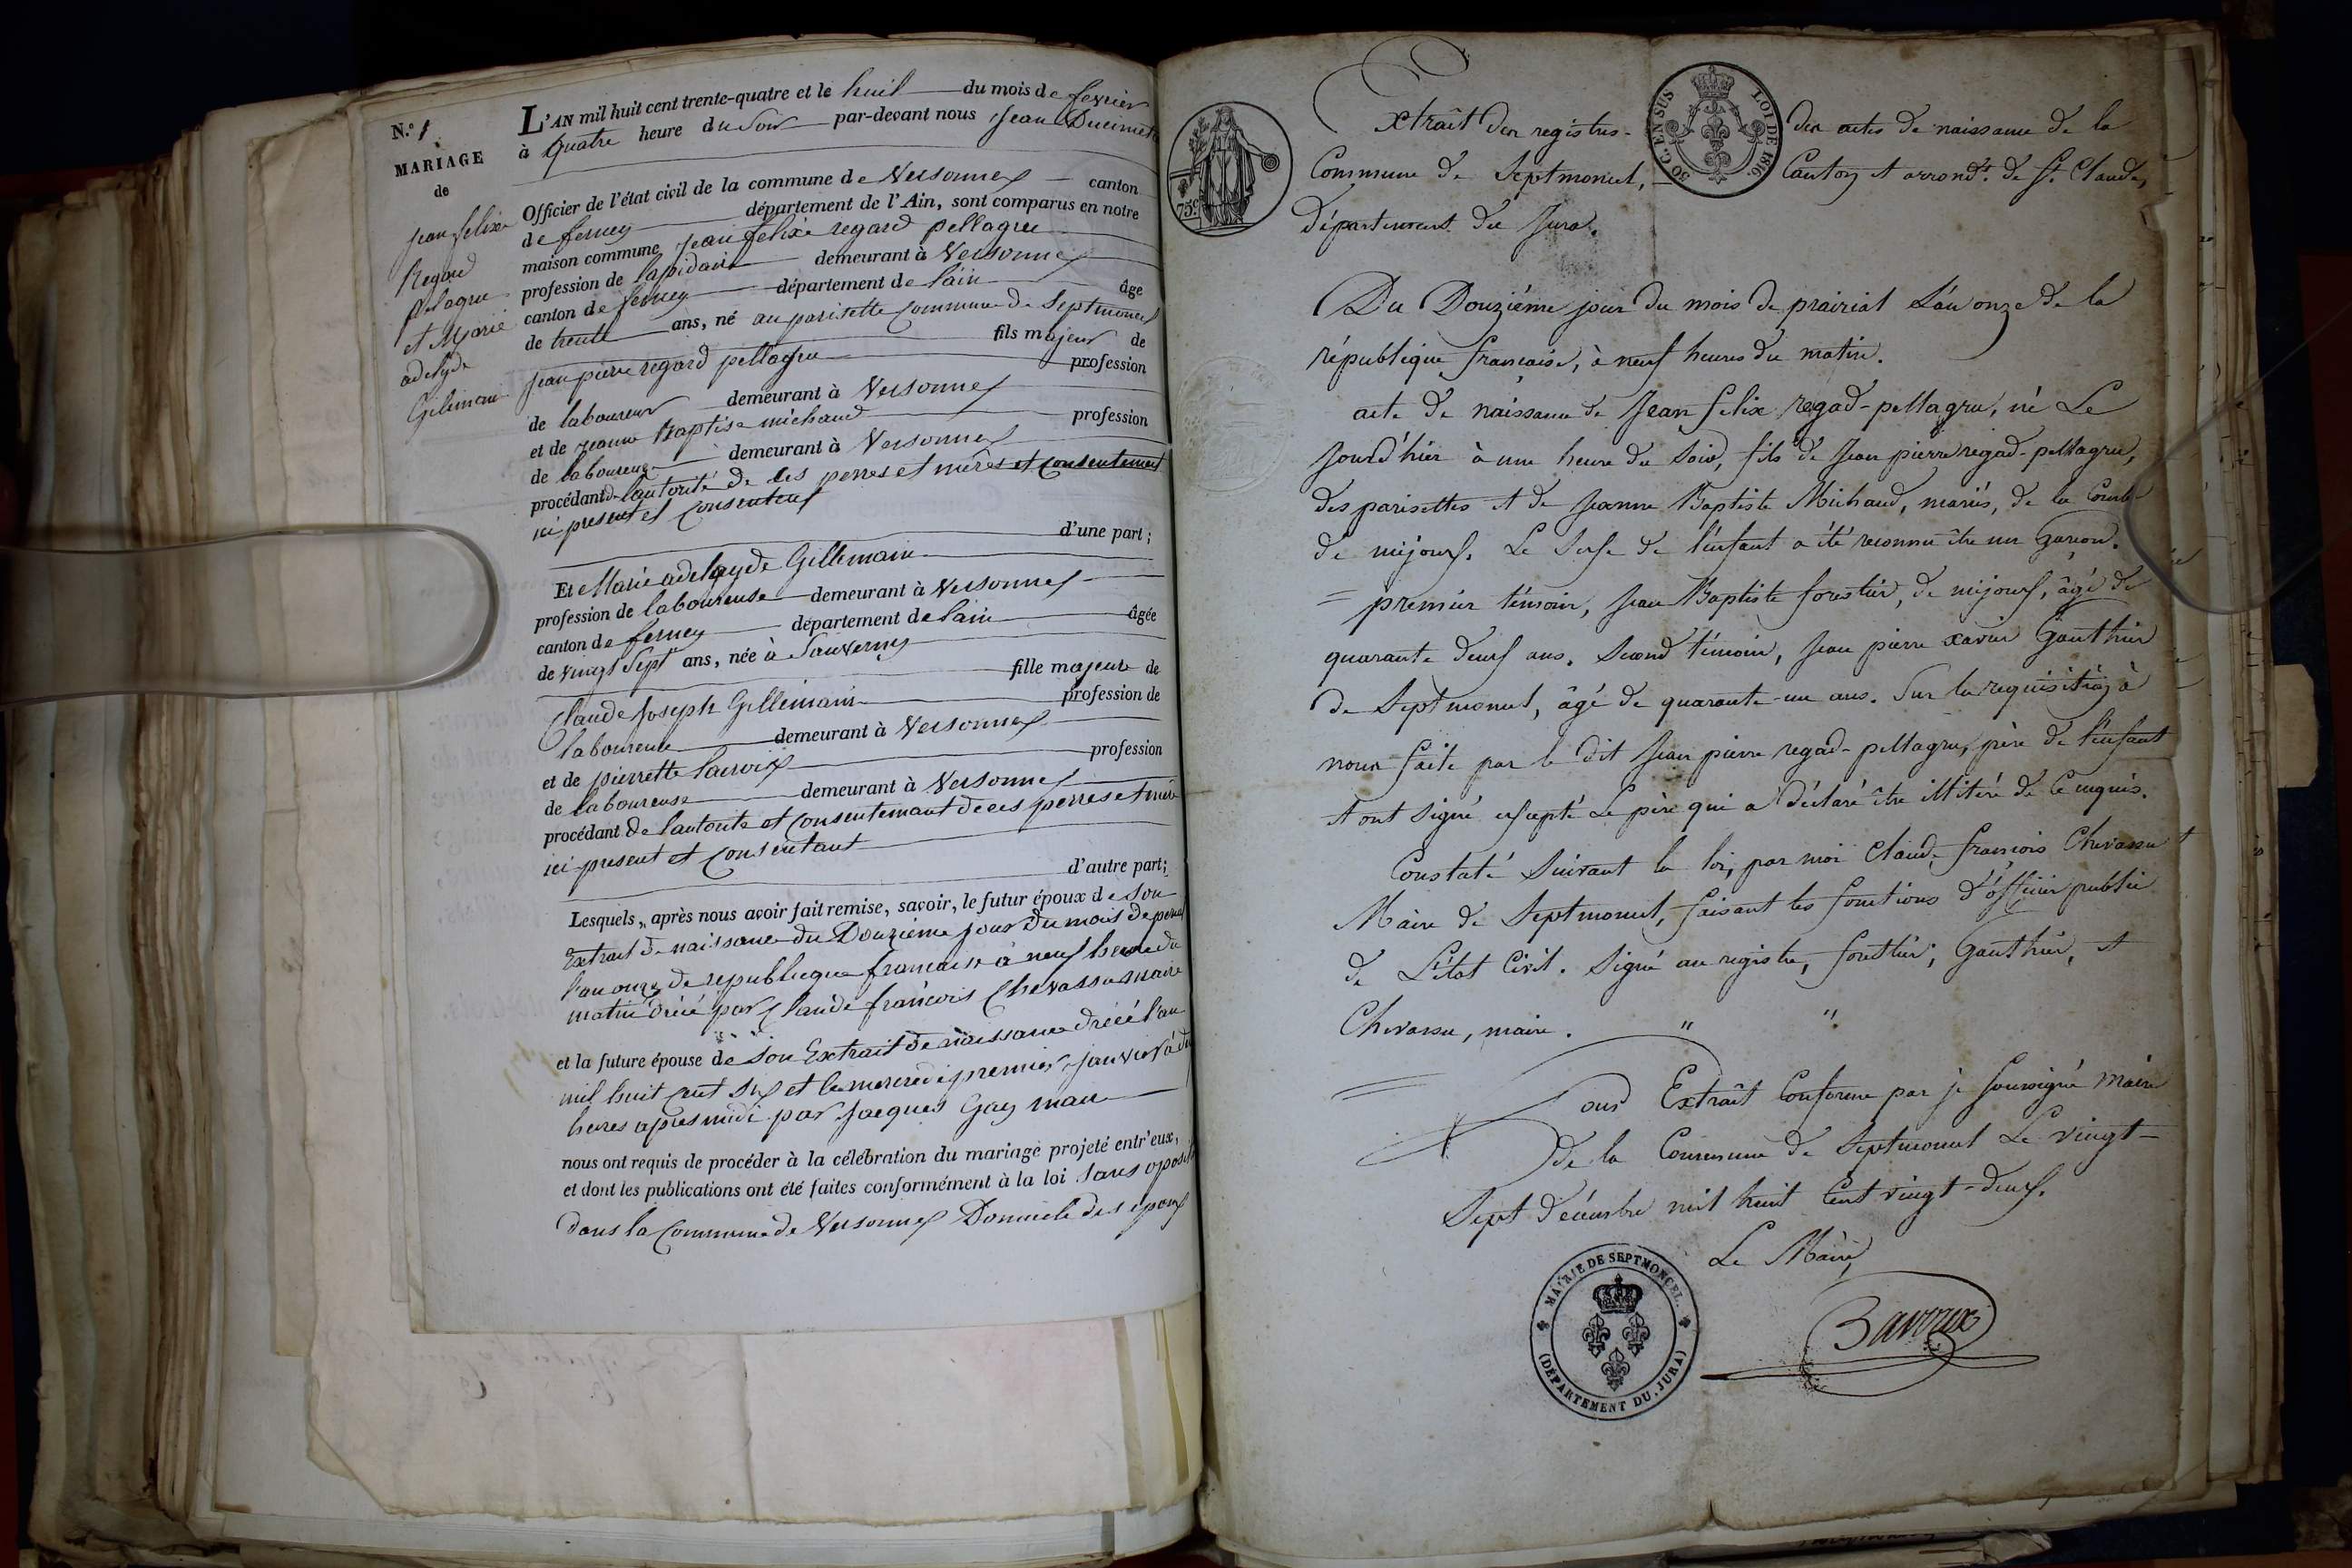 N.º 1
MARIAGE
de
jean felixe
Regard
pelagru
et Marie
adelyde
Gilleman
L'AN mil huit cent trente-quatre et le huit du mois de fevrier
à quatre heure du soir par-devant nous jean
Officier de l'état civil de la commune de Versonnex canton
de ferney département de l'Ain, sont comparus en notre
maison commune jean felixe regard pellagru
profession de lapidaire demeurant à Versonnex
canton de ferney département de lain âge
de trente ans, né au parisette commune de Septmoncel
fils majeur de
jean pierre regard pellagru profession
de laboureur demeurant à Versonnex
et de jeanne Baptise michaud profession
de laboureuse demeurant à Versonnex
procédant de lautorité de ces perres et mères et consentement
ici present et consentent
d'une part;
Et Marie adelayde Gillemain
profession de laboureuse demeurant à Versonnex
canton de ferney département de lain âgée
de vingt sept ans, née à Sauverny
fille majeure de
Claude Joseph Gillemain profession de
laboureur demeurant à Versonnex
et de pierrette lacroix profession
de laboureuse demeurant à Versonnex
procédant de lautorité et consentemant de ces perres et mère
ici present et consentant
d'autre part;
Lesquels, après nous avoir fait remise, savoir, le futur époux de son
Extrait de naissance du Douzieme jour du mois de
l'an onze de republique francaise à neuf heure du
matin drécé par Claude françois Chevassu maire
et la future épouse de son Extrait de naissance drécé l'an
mil huit cent six et le mercredi premier janvier à
heures apres midi par Jacques Gay maire
nous ont requis de procéder à la célébration du mariage projeté entr'eux,
et dont les publications ont été faites conformément à la loi sans
dans la Commune de Versonnex Domicile des epoux
75.c
50 C. EN SUS
LOI DE 1816
Extrait des registres des actes de naissance de la
Commune de Septmoncel, Canton et arrond.t de St. Claude,
Département du Jura.
Du Douzième jour du mois de prairial L'an onze de la
république française, à neuf heures du matin.
acte de naissance de Jean felix regad-pellagru, né Le
jourd'hier à une heure du soir, fils de Jean pierre regad-pellagru,
des parisettes et de Jeanne Baptiste Michaud, mariés, de la Combe
de mijoux. Le Sexe de l'enfant a été reconnu être un Garçon.
= premier témoin, Jean Baptiste forestier, de mijoux, âgé de
quarante deux ans. Second témoin, Jean pierre xavier Gauthier
de Septmoncel, âgé de quarante-un ans. Sur la requisition à
nous faite par le dit Jean pierre regad-pellagru, père de l'enfant
et ont signé excepté Le père qui a déclaré être illitéré de Ce enquis.
Constaté Suivant la loi, par moi Claude françois Chevassu
Maire de Septmoncel, faisant les fonctions d'officier public
de L'état Civil. Signé au registre, forestier, Gauthier, et
Chevassu, maire. " "
Pour Extrait Conforme par je soussigné Maire
de la Commune de Septmoncel Le vingt-
Sept décembre mil huit Cent vingt-deux.
Le Maire,
MAIRIE DE SEPTMONCEL.
(DÉPARTEMENT DU JURA)
Bavoux